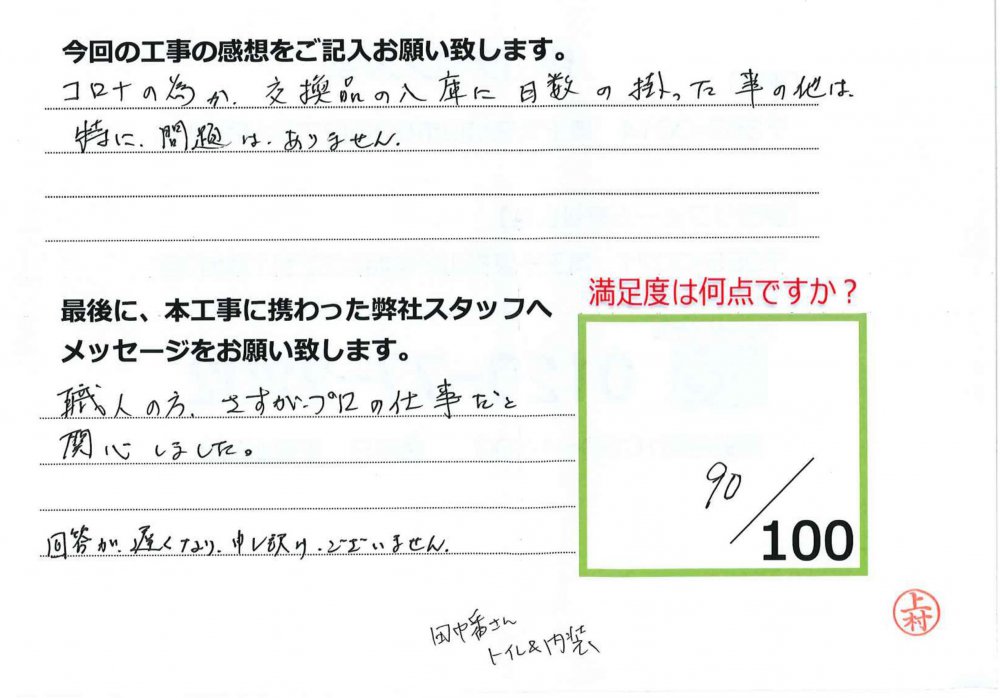 今回の工事の感想をご記入お願い致します。
コロナの為か、交換品の入庫に日数の掛った事の他は、
特に、問題は、ありません。
最後に、本工事に携わった弊社スタッフへ
メッセージをお願い致します。
職人の方、さすがプロの仕事だと
関心しました。
回答が、遅くなり、申し訳け、ございません。
満足度は何点ですか？
90/100
上村
田中番さん
トイレ&内装